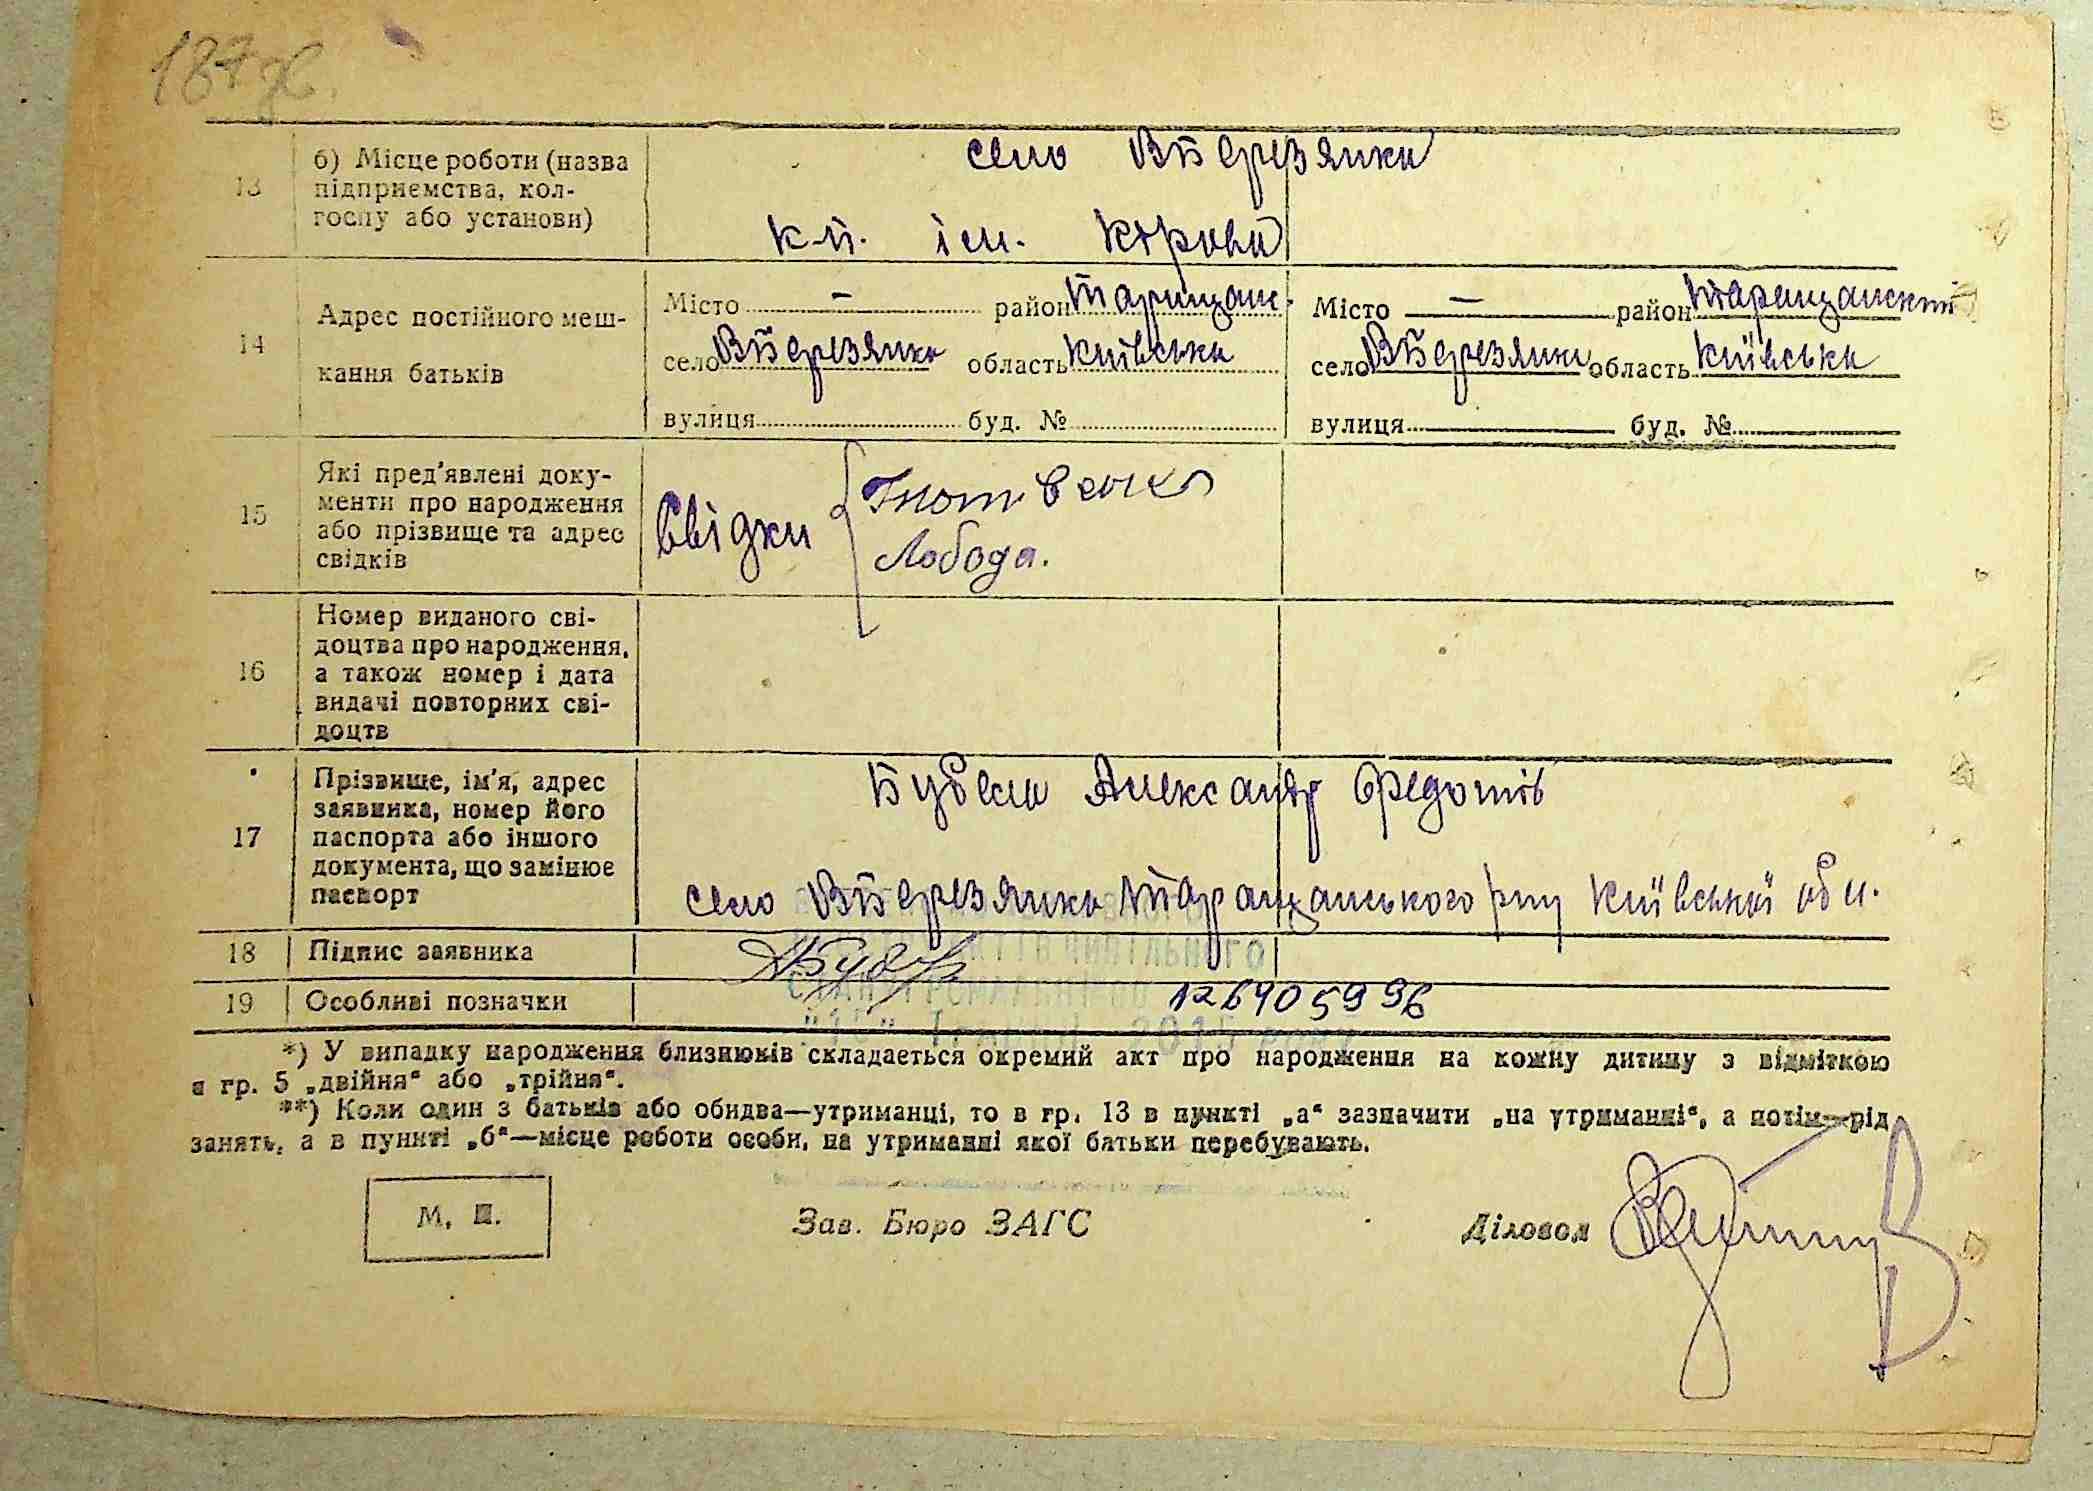 187 зв.
село ВБерезянка
13 б) Місце роботи (назва
підприємства, кол-
госпу або установи)
к-п. ім. Кірова
14 Адрес постійного меш-
кання батьків
Місто — район Таращанс. Місто — район Таращанский
село ВБерезянка область Київська село ВБерезянка область Київська
вулиця буд. № вулиця буд. №
15 Які пред'явлені доку-
менти про народження
або прізвище та адрес
свідків
Свідки
Лобода.
16 Номер виданого сві-
доцтва про народження,
а також номер і дата
видачі повторних сві-
доцтв
17 Прізвище, ім'я, адрес
заявника, номер його
паспорта або іншого
документа, що замінює
паспорт
Александр Федотів
село ВБерезянка Таращанського р-ну Київської обл.
18 Підпис заявника
19 Особливі позначки
*) У випадку народження близнюків складається окремий акт про народження на кожну дитину з відміткою
в гр. 5 „двійня“ або „трійня“.
**) Коли один з батьків або обидва—утриманці, то в гр. 13 в пункті „а“ зазначити „на утриманні“, а потім—рід
занять, а в пункті „б“—місце роботи особи, на утриманні якої батьки перебувають.
М. П. Зав. Бюро ЗАГС Діловод